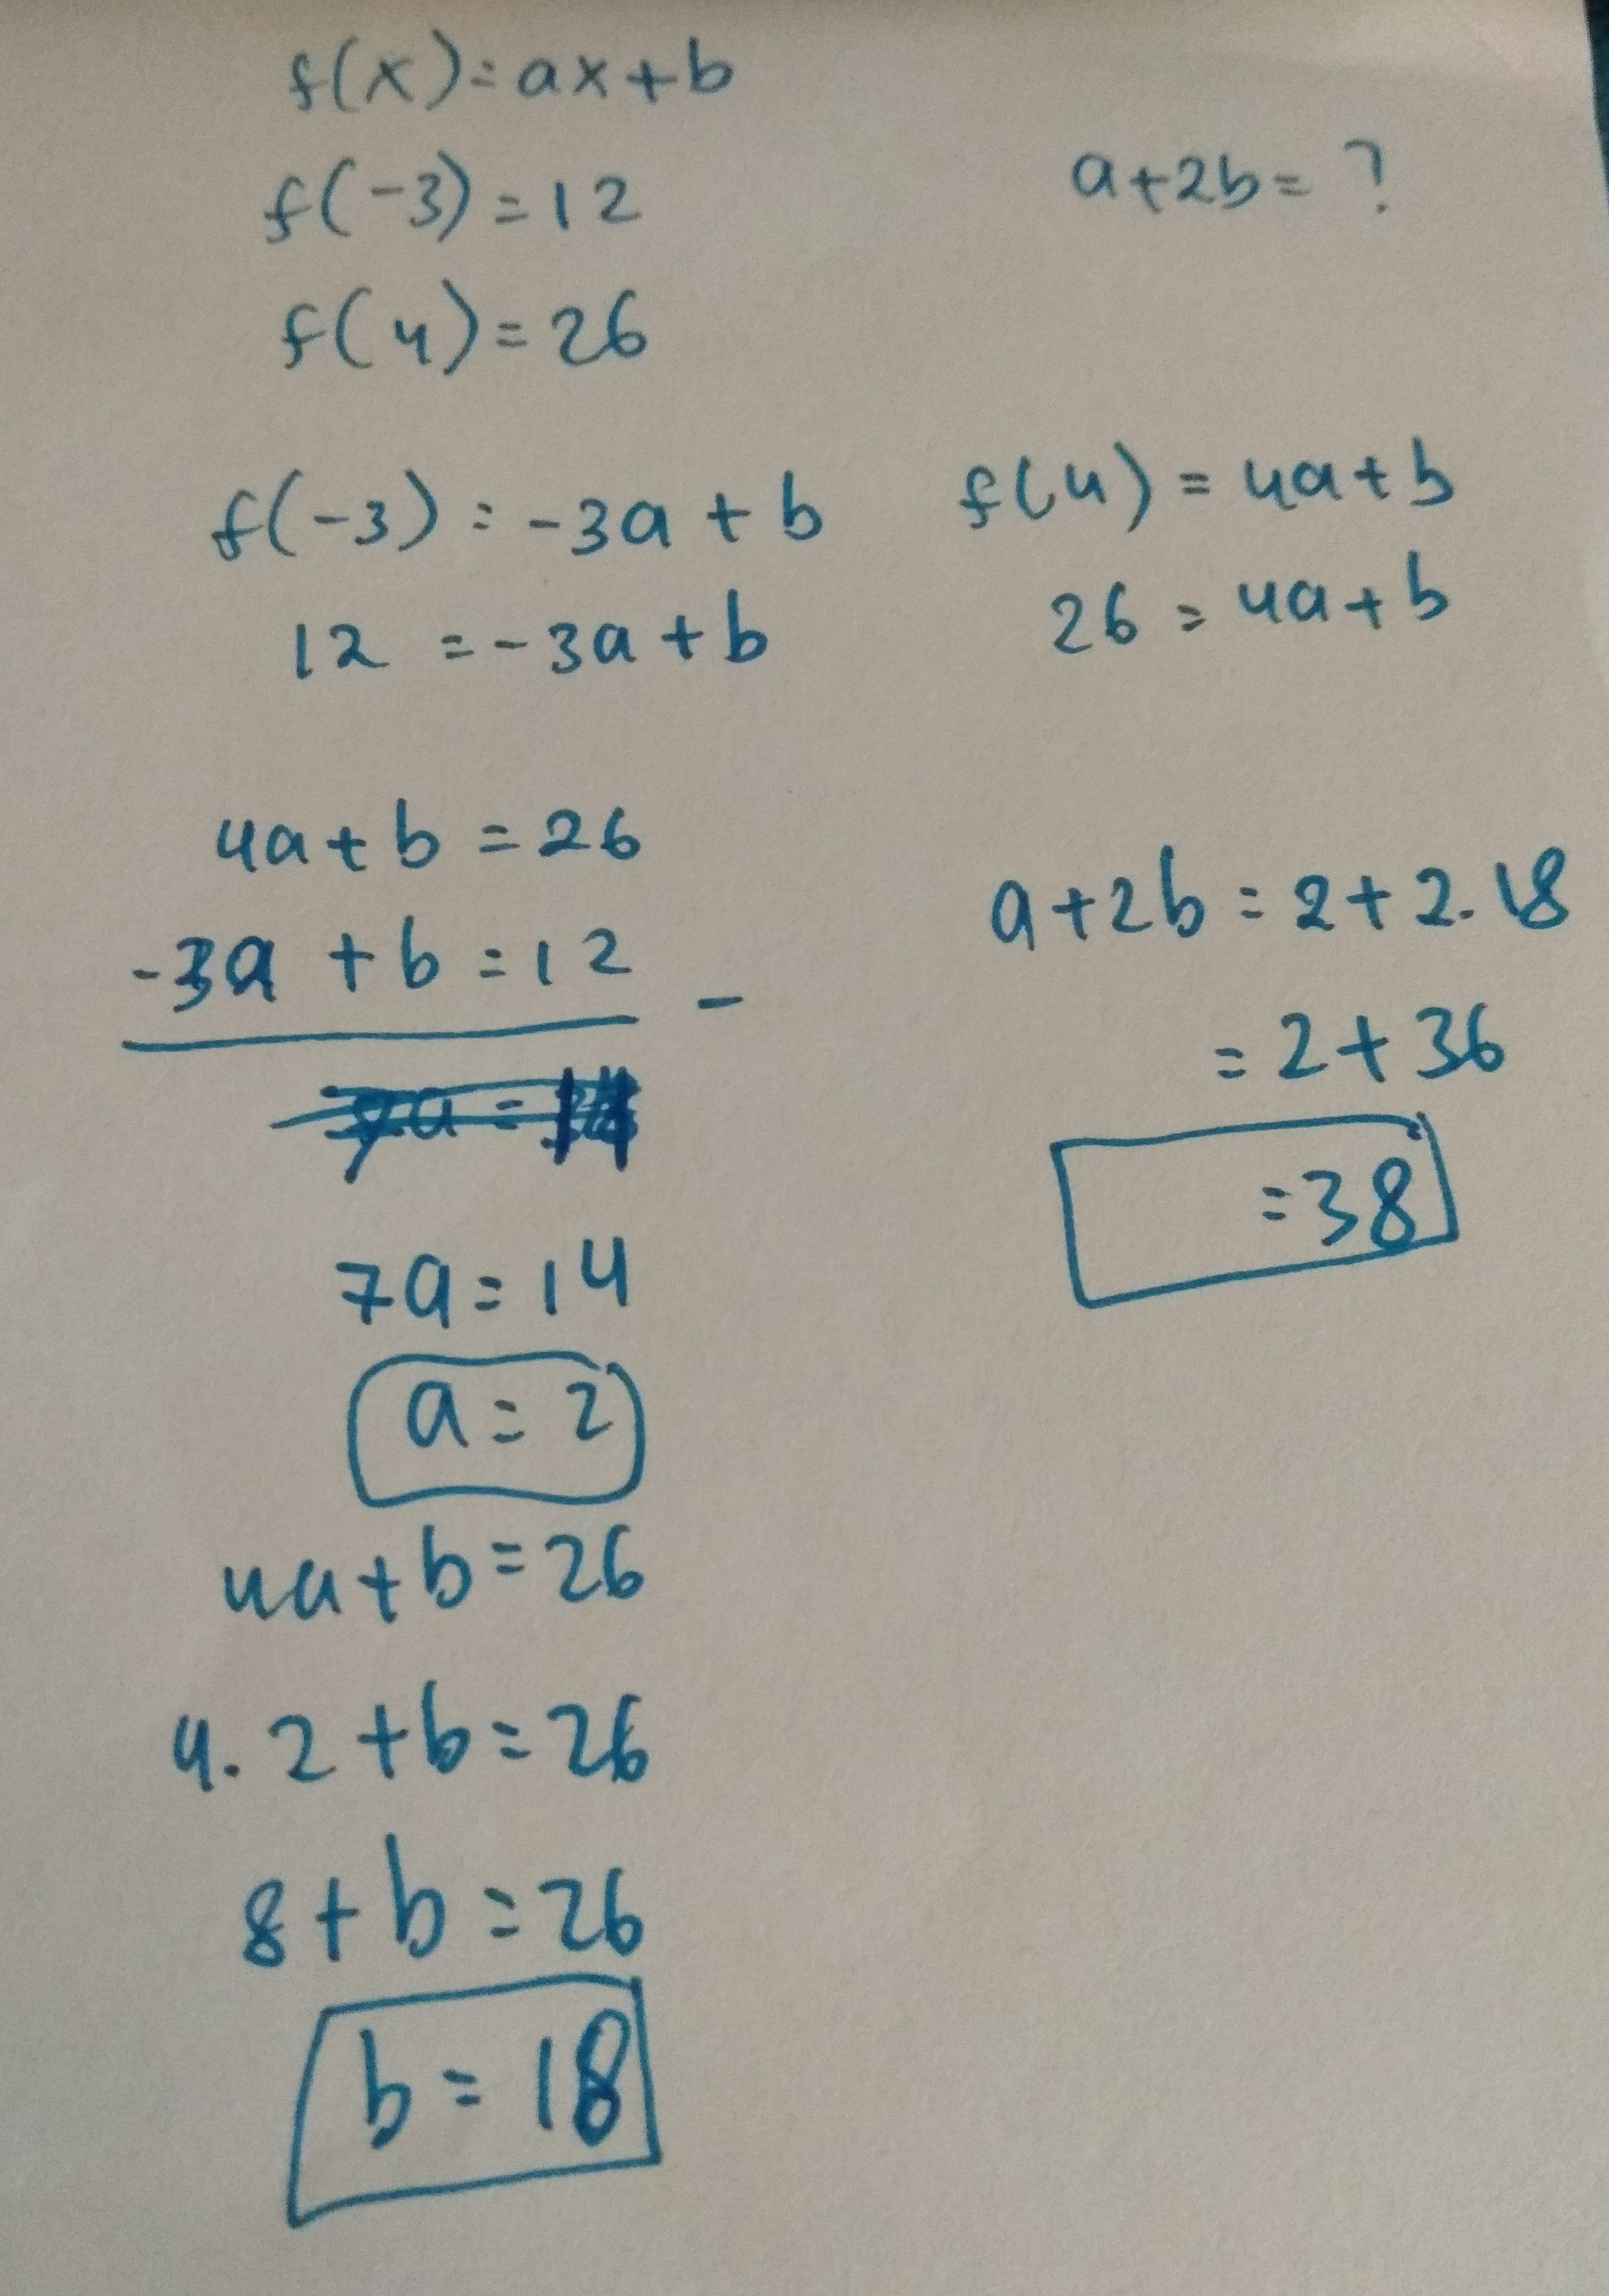 f(x)=ax+b
f(-3)=12
a+2b=?
f(4)=26
f(-3)=-3a+b
12=-3a+b
f(4)=4a+b
26=4a+b
4a+b=26
-3a+b=12
-
7a=14
a=2
4a+b=26
4.2+b=26
8+b=26
b=18
a+2b=2+2.18
=2+36
=38